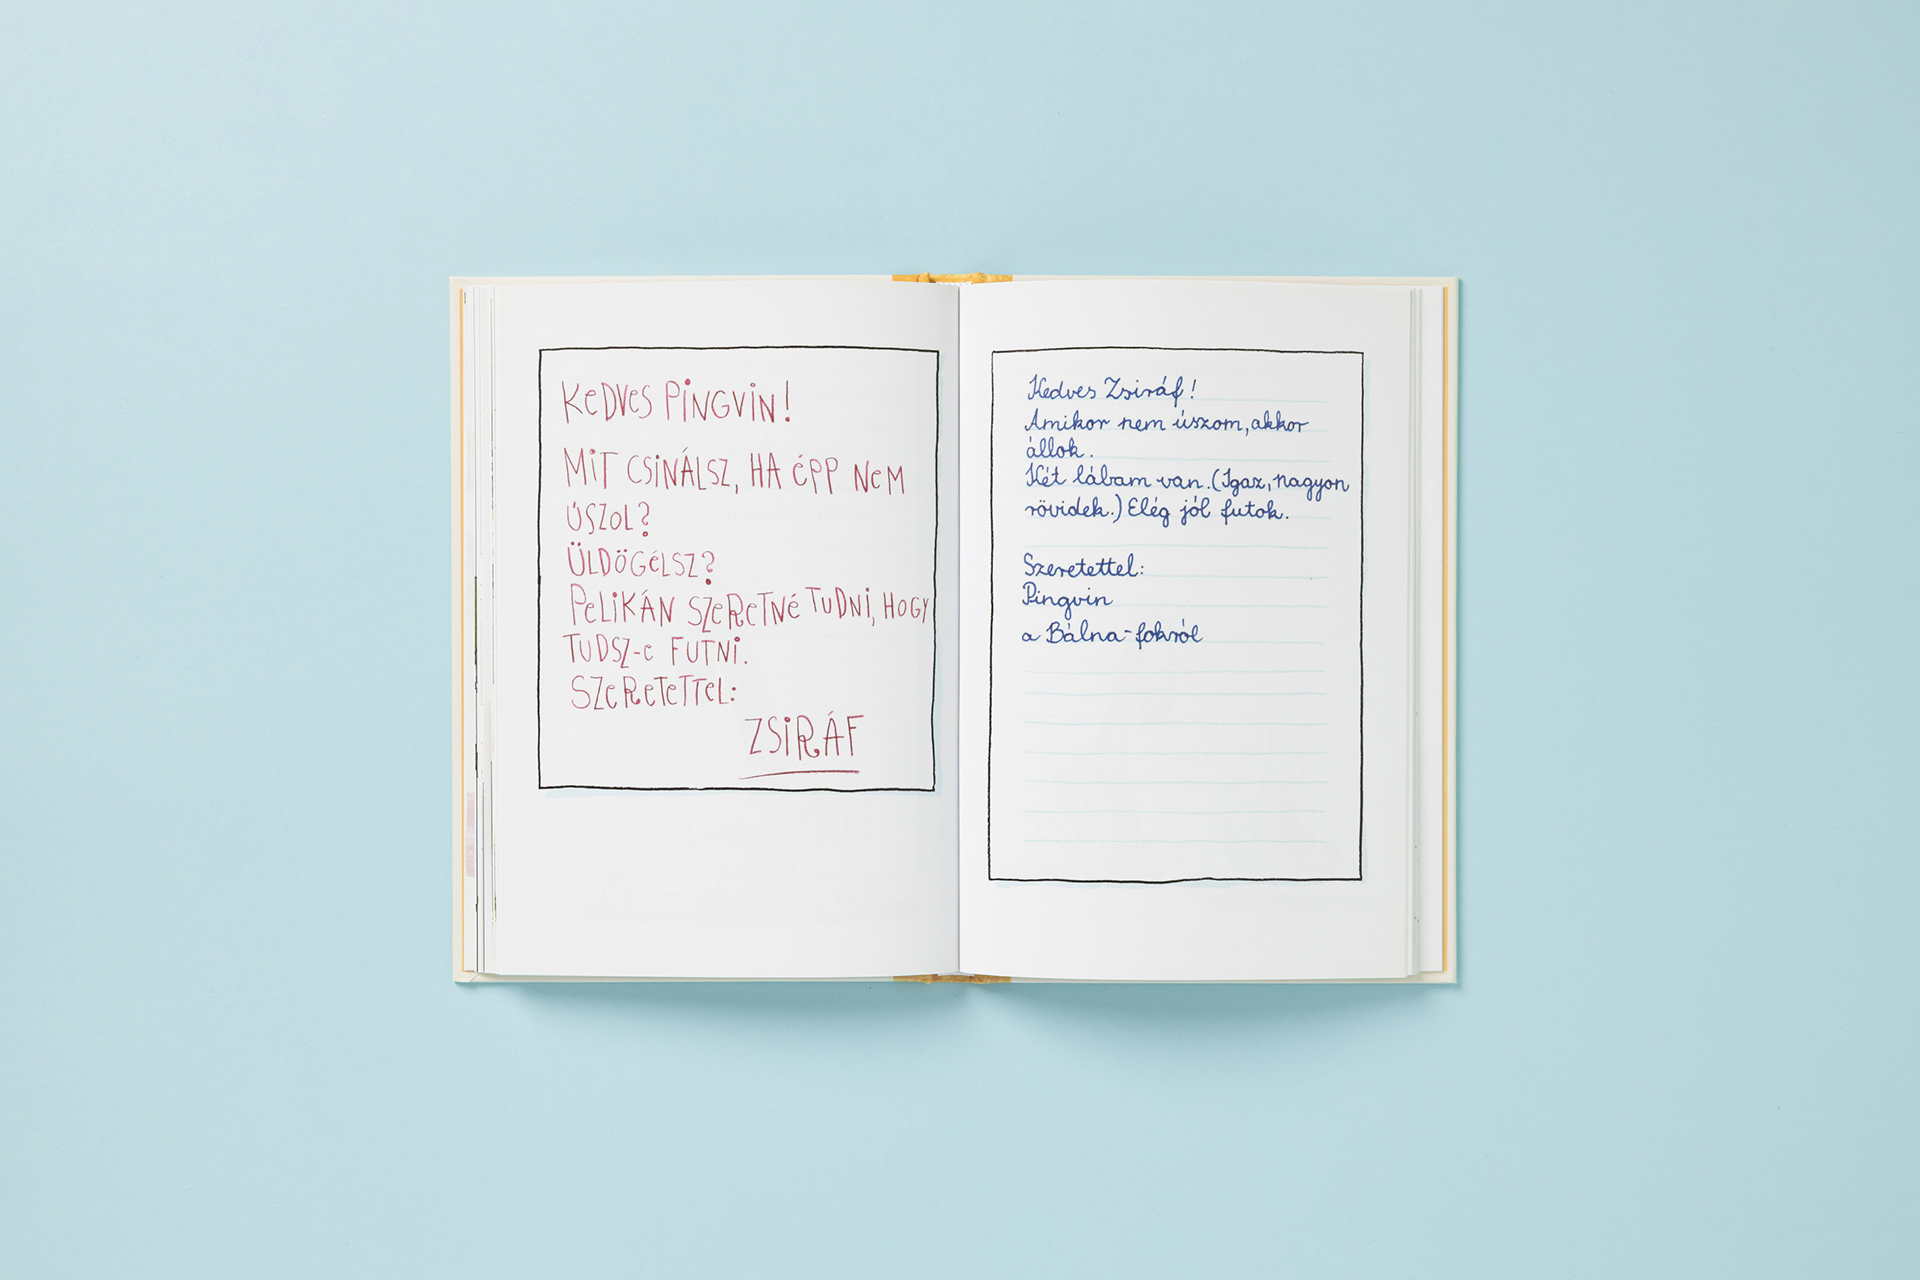 KeDVeS PiNGViN!
MiT CSiNÁLSZ, HA éPP NeM
ÚSZOL?
ÜLDÖGéLSZ?
PeLiKÁN SZeReTNé TUDNi, HOGY
TUDSZ-e FUTNi.
SZeReTeTTeL:
ZSiRÁF
Kedves Zsiráf!
Amikor nem úszom, akkor
állok.
Két lábam van. (Igaz, nagyon
rövidek.) Elég jól futok.
Szeretettel:
Pingvin
a Bálna-fokról